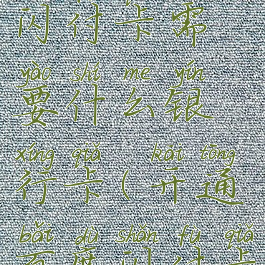 闪付卡需
yào shí me yín
要什么银
xíng qiǎ kāi tōng
行卡(开通
bǎi dù shǎn fù qiǎ
百度闪付卡